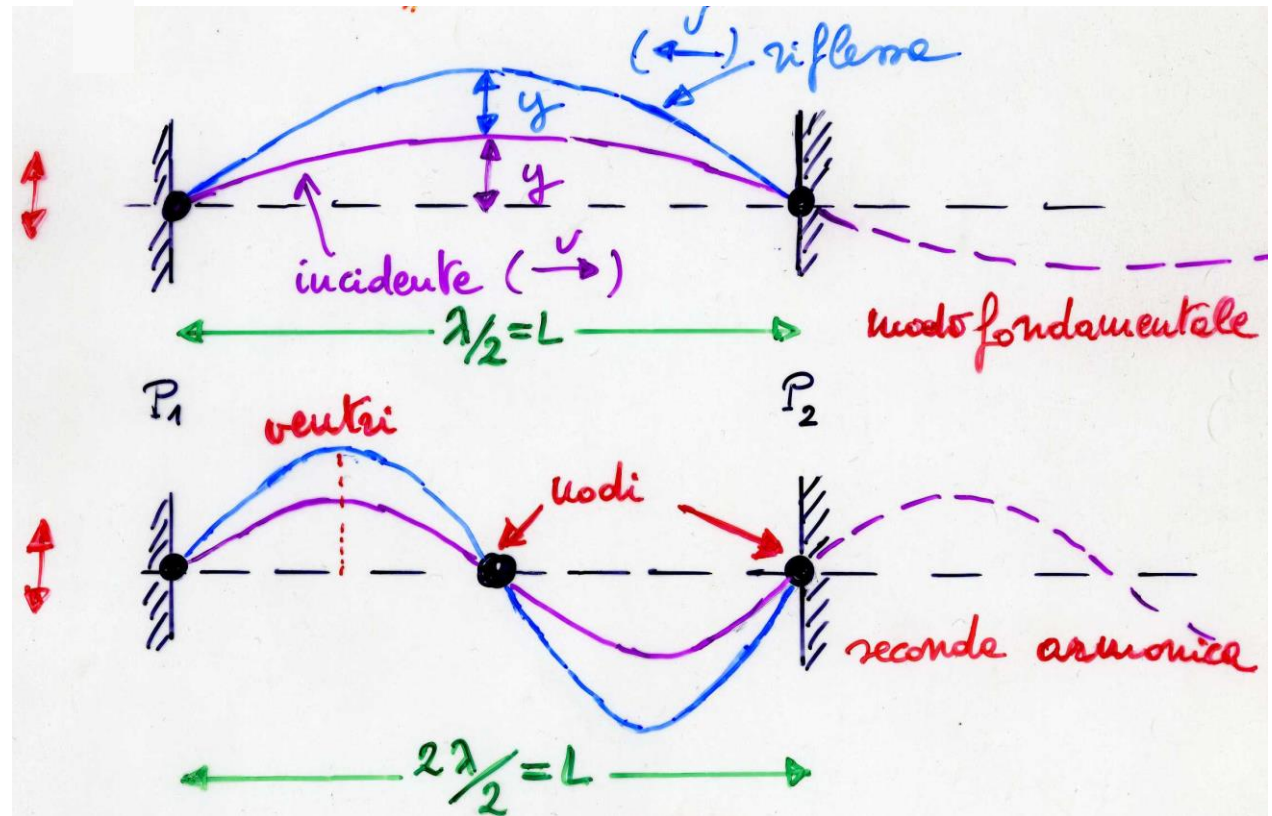 (v) riflessa
y
y
incidente (v)
λ/2 = L
modo fondamentale
P₁
P₂
ventri
nodi
seconda armonica
2λ/2 = L